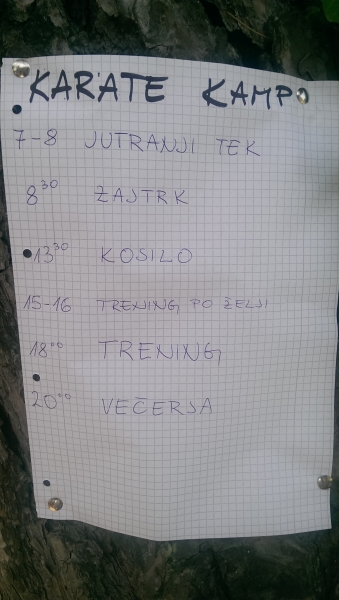 KARATE KAMP
7-8 JUTRANJI TEK
8³⁰ ZAJTRK
13³⁰ KOSILO
15-16 TRENING PO ŽELJI
18⁰⁰ TRENING
20⁰⁰ VEČERJA